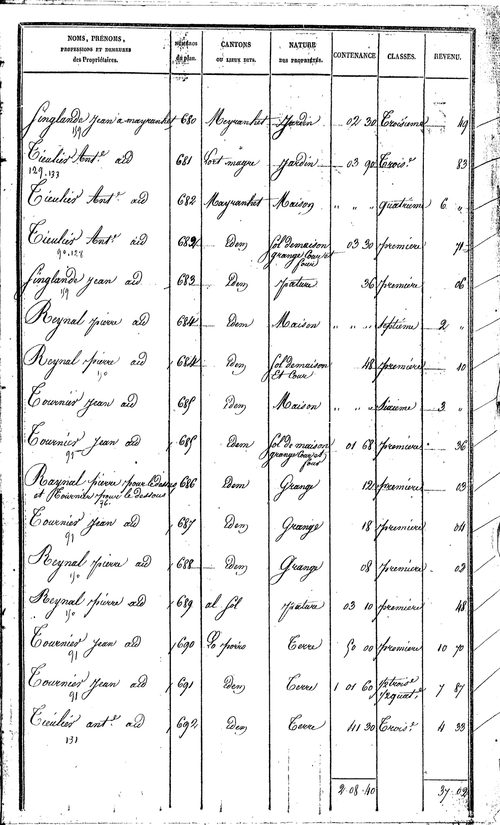 NOMS, PRÉNOMS, PROFESSIONS ET DEMEURES des Propriétaires. NUMÉROS du plan. CANTONS OU LIEUX DITS. NATURE DES PROPRIÉTÉS. CONTENANCE CLASSES. REVENU.
Singlande Jean a mayranhet 680 Meyranhet Jardin 02 30 Troisieme 49
119
Tieulié Ant.e aid 681 Lort magre Jardin 03 90 Trois.e 83
129.133
Tieulié Ant.e aid 682 Mayranhet Maison " " " quatrieme 6 "
Tieulié Ant.e aid 682 Idem Sol de maison grange Cour et four 03 30 première 71
90.128
Singlande Jean aid 683 Idem pature 36 première 06
119
Reynal pierre aid 684 Idem Maison " " " Septième 2 "
Reynal pierre aid 684 Idem Sol de maison Et Cour 48 première 10
Tournier Jean aid 685 Idem Maison " " " Sixieme 3 "
Tournier Jean aid 685 Idem Sol de maison grange Cour et four 01 68 première 36
Raynal pierre pour le dessus 686 Idem Grange 12 première 03
et Tournier pour le dessous
Tournier Jean aid 687 Idem Grange 18 première 04
91
Reynal pierre aid 688 Idem Grange 08 première 02
Reynal pierre aid 689 al Sol pature 03 10 première 48
Tournier Jean aid 690 Terre 50 00 première 10 70
91
Tournier Jean aid 691 Idem Terre 1 01 60 7 87
91
Tieulié ant.e aid 692 Idem Terre 41 30 Trois.e 4 33
131
2 08 40 37 02